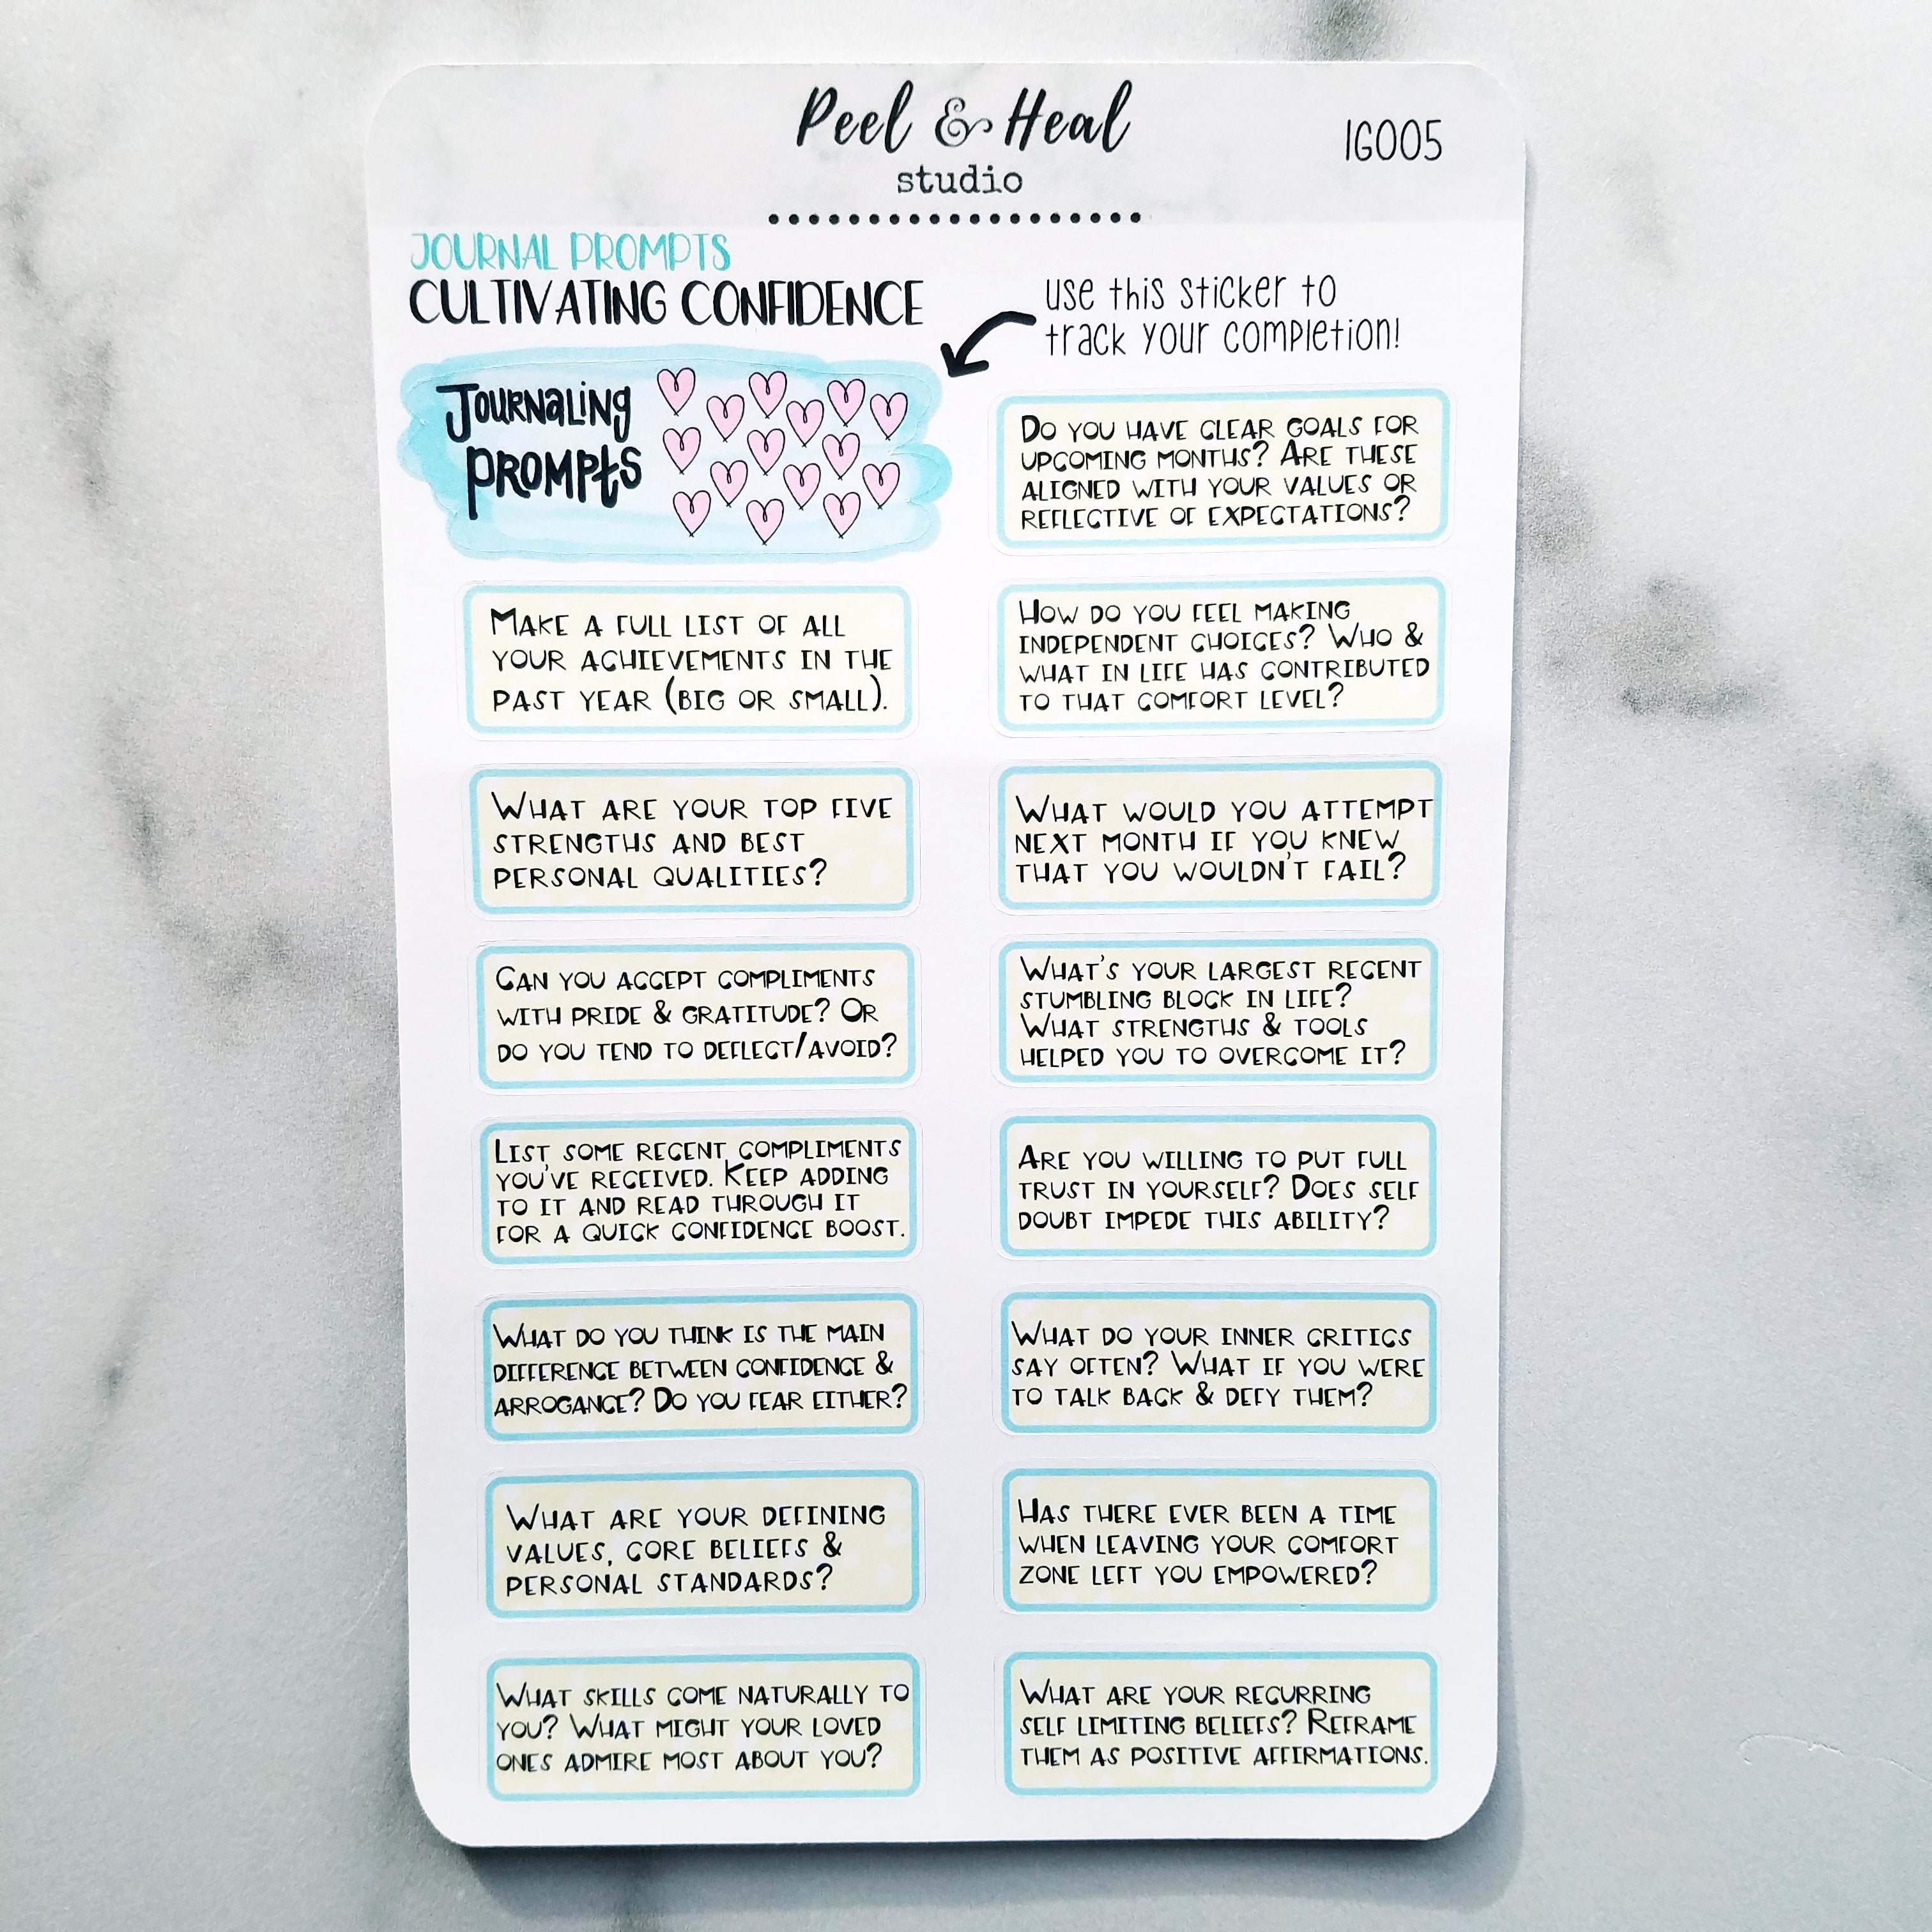 Peel & Heal
studio
IG005
JOURNAL PROMPTS
CULTIVATING CONFIDENCE
use this sticker to
track your completion!
Journaling
Prompts
Make a full list of all
your achievements in the
past year (big or small).
What are your top five
strengths and best
personal qualities?
Can you accept compliments
with pride & gratitude? Or
do you tend to deflect/avoid?
List some recent compliments
you've received. Keep adding
to it and read through it
for a quick confidence boost.
What do you think is the main
difference between confidence &
arrogance? Do you fear either?
What are your defining
values, core beliefs &
personal standards?
What skills come naturally to
you? What might your loved
ones admire most about you?
Do you have clear goals for
upcoming months? Are these
aligned with your values or
reflective of expectations?
How do you feel making
independent choices? Who &
what in life has contributed
to that comfort level?
What would you attempt
next month if you knew
that you wouldn't fail?
What's your largest recent
stumbling block in life?
What strengths & tools
helped you to overcome it?
Are you willing to put full
trust in yourself? Does self
doubt impede this ability?
What do your inner critics
say often? What if you were
to talk back & defy them?
Has there ever been a time
when leaving your comfort
zone left you empowered?
What are your recurring
self limiting beliefs? Reframe
them as positive affirmations.